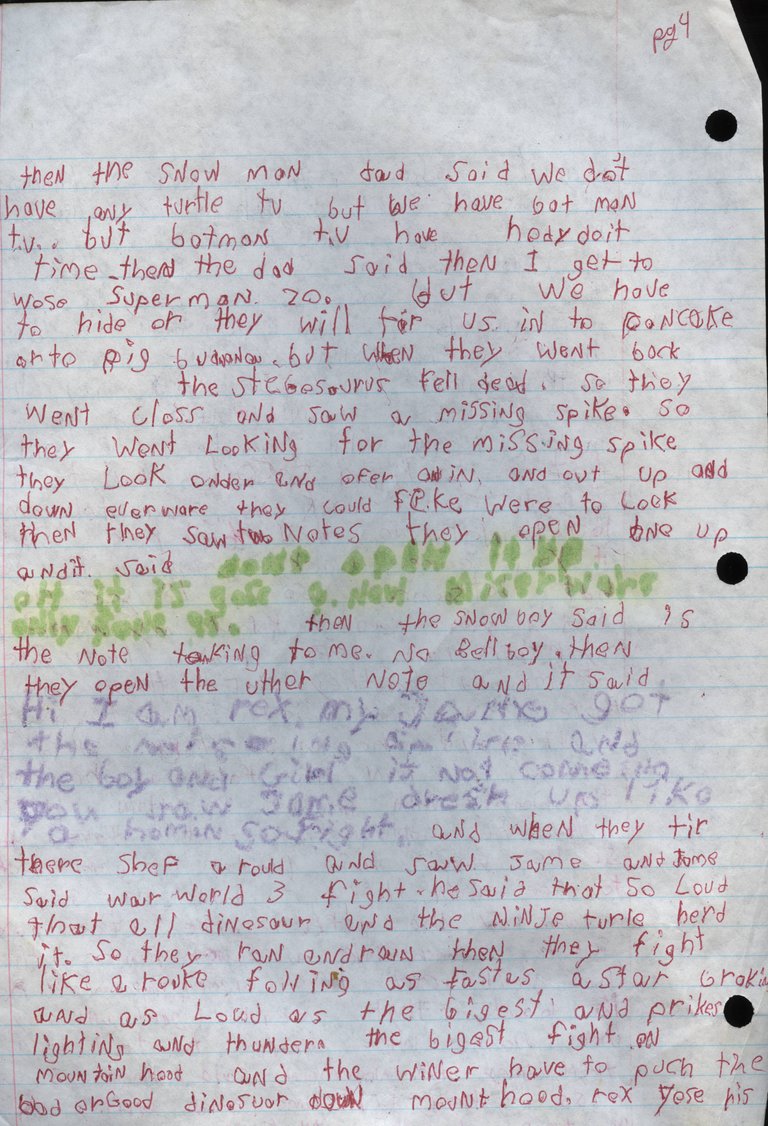 pg4
then the snow man dad said we dot
have any turtle tv but we have bat man
t.v.. but batman t.v have heay doit
time then the dad said then I get to
wose superman 20. but we have
to hide or they will for us in to pancake
orto pig but when they went back
the stegesourus fell dead. so they
went closs and saw a missing spike. so
they went Looking for the missing spike
they Look onder and ofer in, and out up and
down everware they could were to Look
then they saw two Notes they open one up
andit said
then the snow boy said is
the Note to me. No Bellboy. then
they open the uther Note and it said
Hi I am rex, my got
the and
the boy and is not
you now Jame dresh up like
a homan so fight, and when they tir
there shef a roud and saw Jame and Jame
said war world 3 fight. he said that so Loud
that all dinosaur and the NiNJe turle herd
it. so they ran andran then they fight
like a rouke folling as fastas a star
and as Loud as the bigest and prikes
lighting and thunder. the bigest fight on
mountain hood and the winer have to puch the
bad orGood dinosuor mount hood. rex his